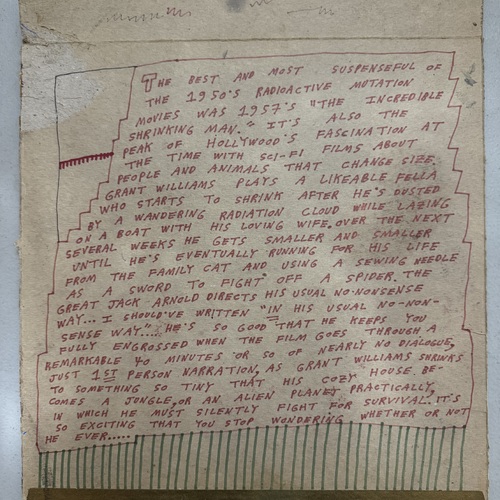 THE BEST AND MOST SUSPENSEFUL OF
THE 1950'S RADIOACTIVE MUTATION
MOVIES WAS 1957'S "THE INCREDIBLE
SHRINKING MAN." IT'S ALSO THE
PEAK OF HOLLYWOOD'S FASCINATION AT
THE TIME WITH SCI-FI FILMS ABOUT
PEOPLE AND ANIMALS THAT CHANGE SIZE.
GRANT WILLIAMS PLAYS A LIKEABLE FELLA
WHO STARTS TO SHRINK AFTER HE'S DUSTED
BY A WANDERING RADIATION CLOUD WHILE LAZING
ON A BOAT WITH HIS LOVING WIFE. OVER THE NEXT
SEVERAL WEEKS HE GETS SMALLER AND SMALLER
UNTIL HE'S EVENTUALLY RUNNING FOR HIS LIFE
FROM THE FAMILY CAT AND USING A SEWING NEEDLE
AS A SWORD TO FIGHT OFF A SPIDER. THE
GREAT JACK ARNOLD DIRECTS HIS USUAL NO-NONSENSE
WAY... I SHOULD'VE WRITTEN "IN HIS USUAL NO-NON-
SENSE WAY"... HE'S SO GOOD THAT HE KEEPS YOU
FULLY ENGROSSED WHEN THE FILM GOES THROUGH A
REMARKABLE 40 MINUTES OR SO OF NEARLY NO DIALOGUE,
JUST 1ST PERSON NARRATION, AS GRANT WILLIAMS SHRINKS
TO SOMETHING SO TINY THAT HIS COZY HOUSE BE-
COMES A JUNGLE, OR AN ALIEN PLANET PRACTICALLY,
IN WHICH HE MUST SILENTLY FIGHT FOR SURVIVAL. IT'S
SO EXCITING THAT YOU STOP WONDERING WHETHER OR NOT
HE EVER.....